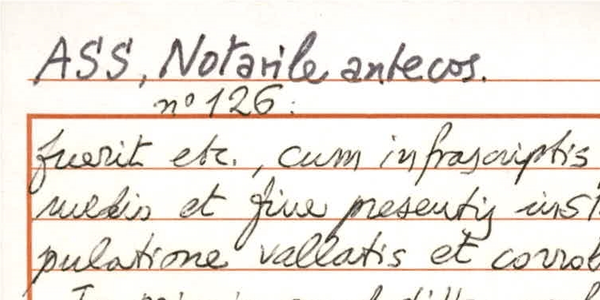 ASS, Notarile antecos.
nº 126:
fuerit etc., cum infrascriptis
et five presentis
pulatione vallatis et